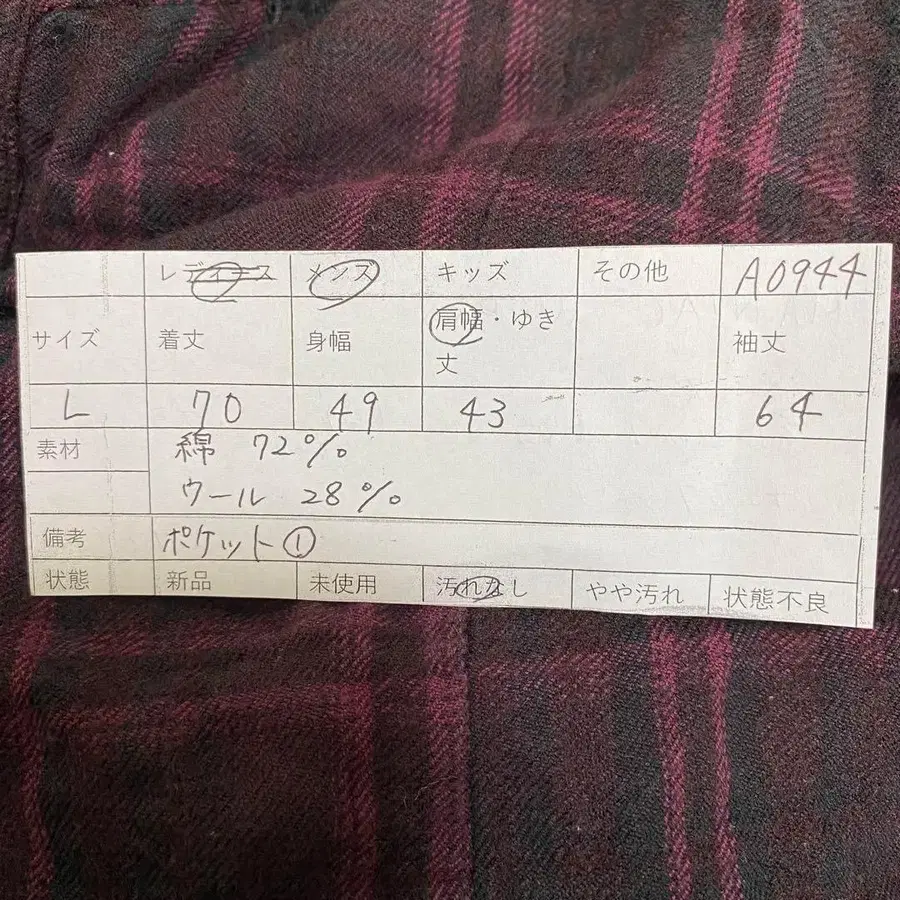 レディース メンズ キッズ その他 A0944
サイズ 着丈 身幅 肩幅・ゆき丈 袖丈
L 70 49 43 64
素材 綿 72%
ウール 28%
備考 ポケット①
状態 新品 未使用 汚れなし やや汚れ 状態不良